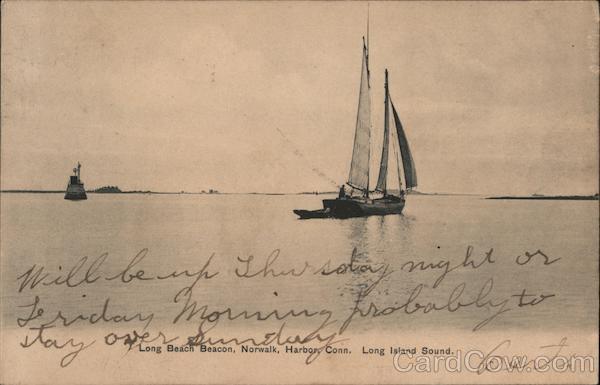 Will be up Thursday night or
Friday Morning probably to
stay over Sunday
Long Beach Beacon, Norwalk, Harbor, Conn. Long Island Sound.
CardCow.com